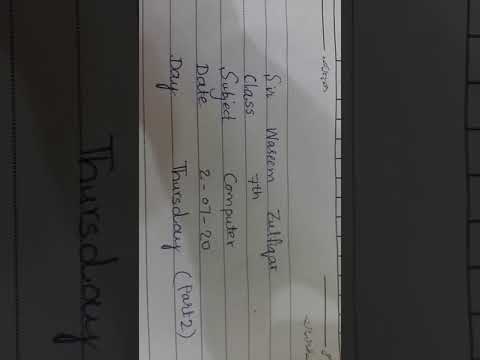 Sir Waseem Zulfiqar
Class 7th
Subject Computer
Date 2-07-20
Day Thursday (Part 2)
Thursday